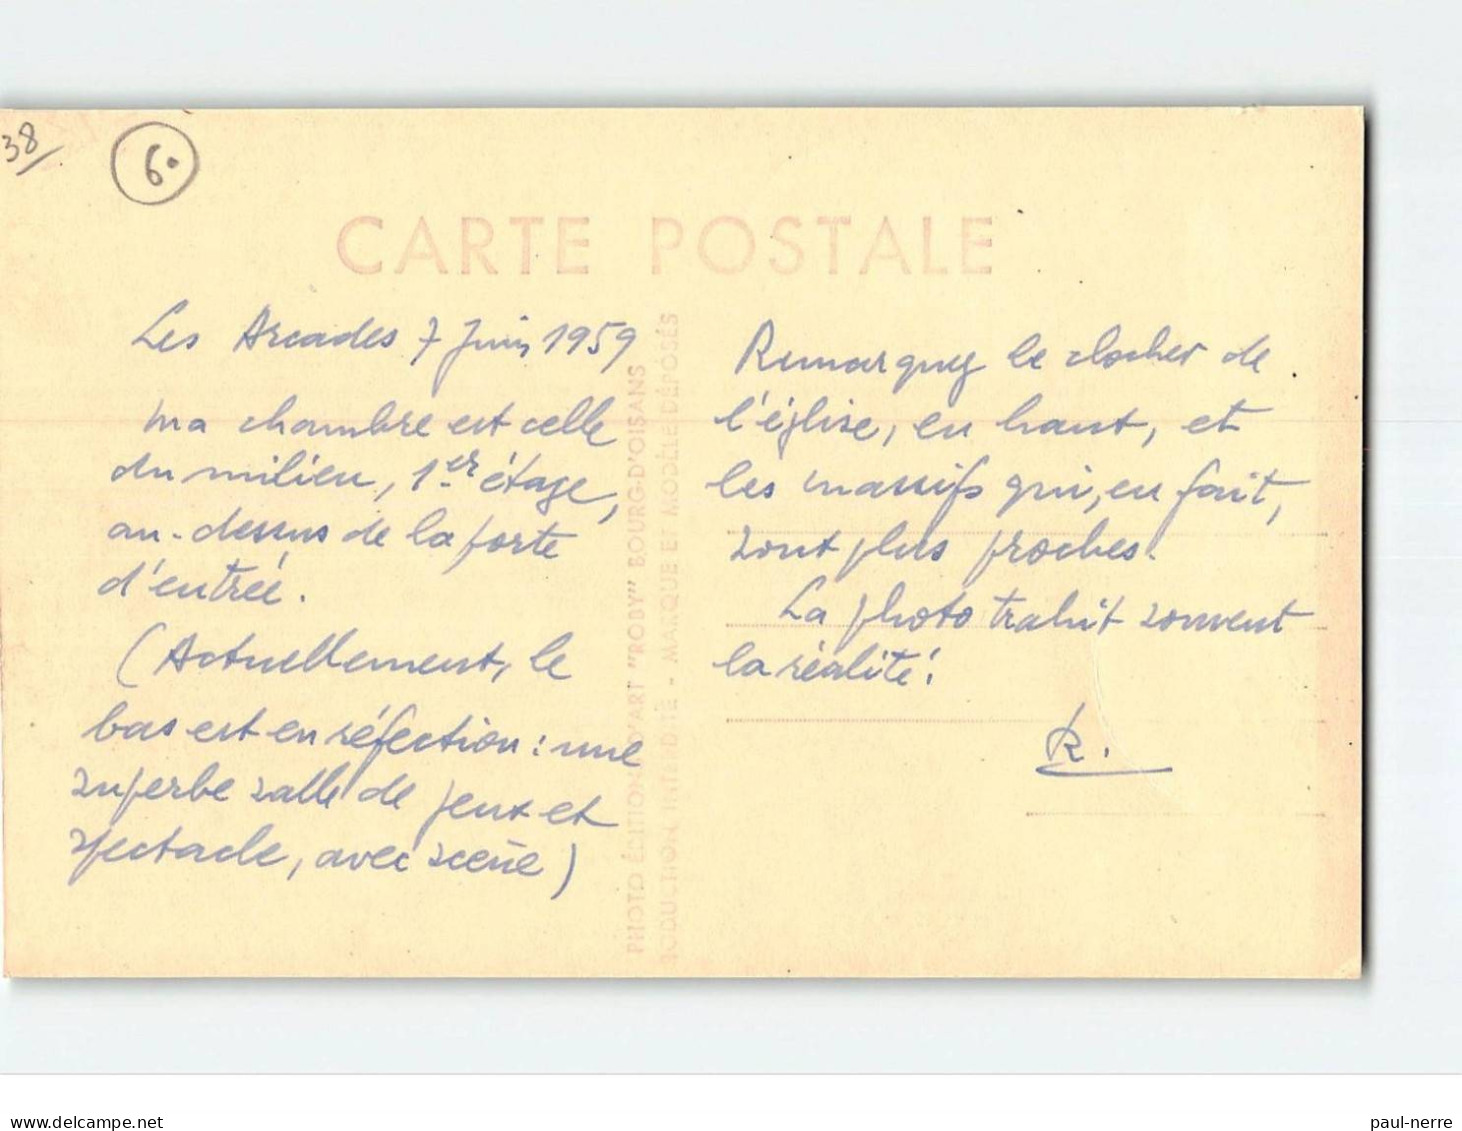 38
6.
CARTE POSTALE
Les Arcades 7 Juin 1959
Ma chambre est celle
du milieu, 1er étage,
au-dessus de la porte
d'entrée.
(Actuellement, le
bas est en réfection : une
superbe salle de jeux et
spectacle, avec scène)
PHOTO ÉDITION D'ART "ROBY" BOURG-D'OISANS
RODUCTION INTERDITE - MARQUE ET MODÈLE DÉPOSÉS
Remarquez le clocher de
l'église, en haut, et
les massifs qui, en fait,
sont plus proches.
La photo trahit souvent
la réalité !
R.
delcampe.net
paul-nerre